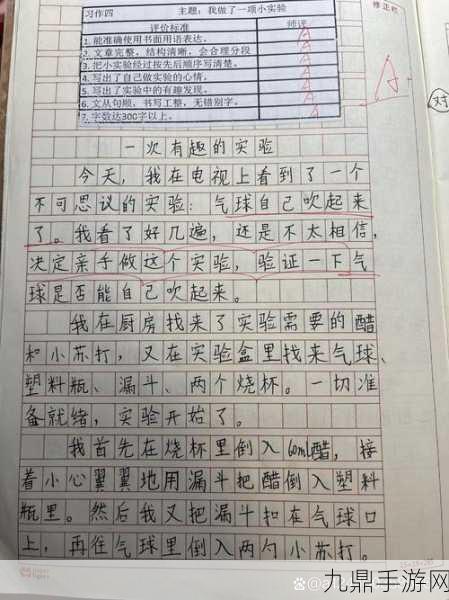 习作四 主题：我做了一项小实验
修正栏
评价标准 师评
1. 能准确使用书面用语表达。 A
2. 文章完整，结构清晰，会合理分段 A
3. 把小实验经过按先后顺序写清楚。 A
4. 写出了自己做实验的心情。 A
5. 写出了实验中的有趣发现。 A
6. 文从句顺，书写工整，无错别字。 A
7. 字数达300字以上。 A
A
对
一次有趣的实验
今天，我在电视上看到了一个
不可思议的实验：气球自己吹起来
了。我看了好几遍，还是不太相信，
决定亲手做这个实验，验证一下气
球是否能自己吹起来。
我在厨房找来了实验需要的醋
和小苏打，又在实验盒里找来气球、
塑料瓶、漏斗、两个烧杯。一切准
备就绪，实验开始了。
我首先在烧杯里倒入60ml醋，接
着小心翼翼地用漏斗把醋倒入塑料
瓶里。然后我又把漏斗扣在气球口
上，再往气球里倒入两勺小苏打。
九鼎手游网